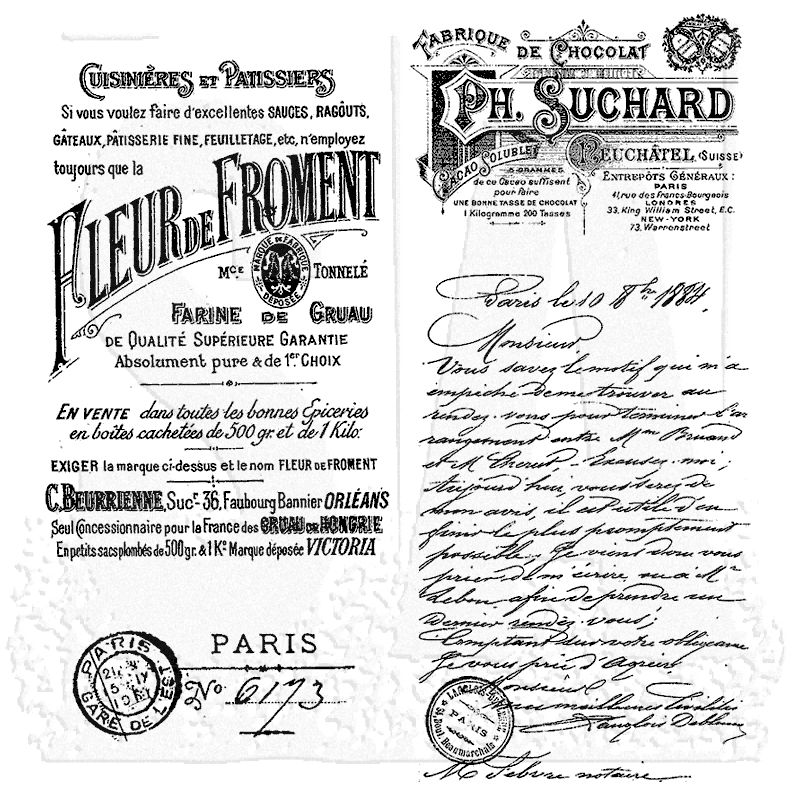 CUISINIÈRES ET PATISSIERS
Si vous voulez faire d'excellentes SAUCES, RAGÔUTS,
GÂTEAUX, PÂTISSERIE FINE, FEUILLETAGE, etc, n'employez
toujours que la
FLEUR DE FROMENT
MARQUE DE FABRIQUE
DÉPOSÉE
Mce TONNELÉ
FARINE DE GRUAU
DE QUALITÉ SUPÉRIEURE GARANTIE
Absolument pure & de 1er CHOIX
EN VENTE dans toutes les bonnes Epiceries
en boîtes cachetées de 500 gr. et de 1 Kilo.
EXIGER la marque ci-dessus et le nom FLEUR DE FROMENT
C. BEURRIENNE, Sucr 36, Faubourg Bannier ORLÉANS
Seul Concessionnaire pour la France des GRUAU DE HONGRIE
En petits sacs plombés de 500 gr. & 1 Ko Marque déposée VICTORIA
PARIS
GARE DE L'EST
PARIS
No. 6173
FABRIQUE DE CHOCOLAT
PH. SUCHARD
NEUCHÂTEL (SUISSE)
CACAO SOLUBLE
5 GRAMMES
de ce Cacao suffisent
pour faire
UNE BONNE TASSE DE CHOCOLAT
1 Kilogramme 200 Tasses
ENTREPÔTS GÉNÉRAUX:
PARIS
41, rue des Francs-Bourgeois
LONDRES
33, King William Street, E.C.
NEW-YORK
73, Warrenstreet
Paris le 10 8bre 1884.
Monsieur
Vous savez le motif qui m'a
empêché de me trouver au
rendez-vous pour terminer l'ar
rangement entre Mm Bruand
et M. Excusez-moi,
Aujourd'hui, vous serez de
mon avis, il est utile d'en
finir le plus promptement
possible, Je viens donc vous
prier de m'écrire, ou à Mr
Lebon afin de prendre un
Dernier rendez-vous;
Comptant sur votre obligeance
Je vous prie d'Agréer,
Monsieur
mes meilleures Civilités
PARIS
Beaumarchais
M. Lebvre notaire